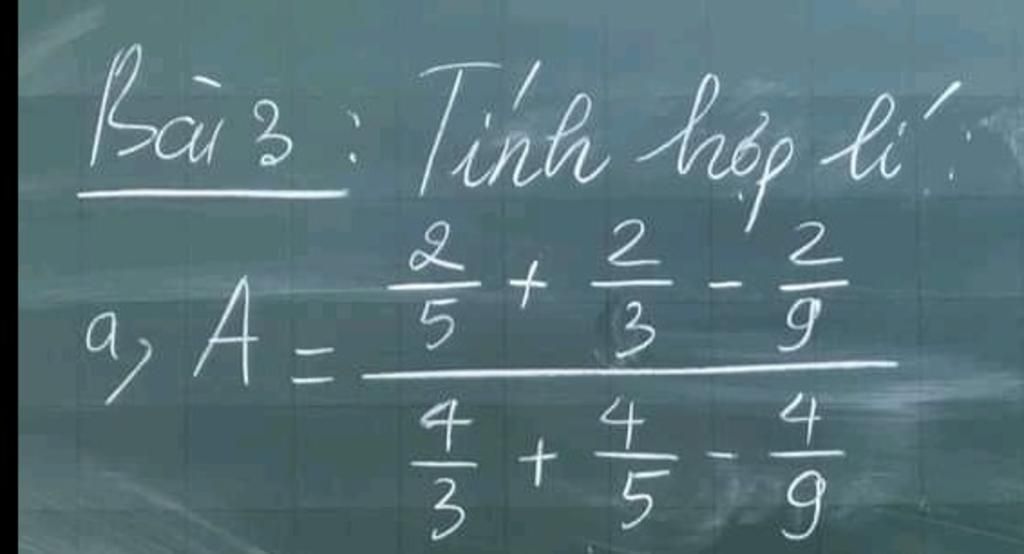 Bài 3 : Tính hợp lí :
a, A = \frac{\frac{2}{5} + \frac{2}{3} - \frac{2}{9}}{\frac{4}{3} + \frac{4}{5} - \frac{4}{9}}